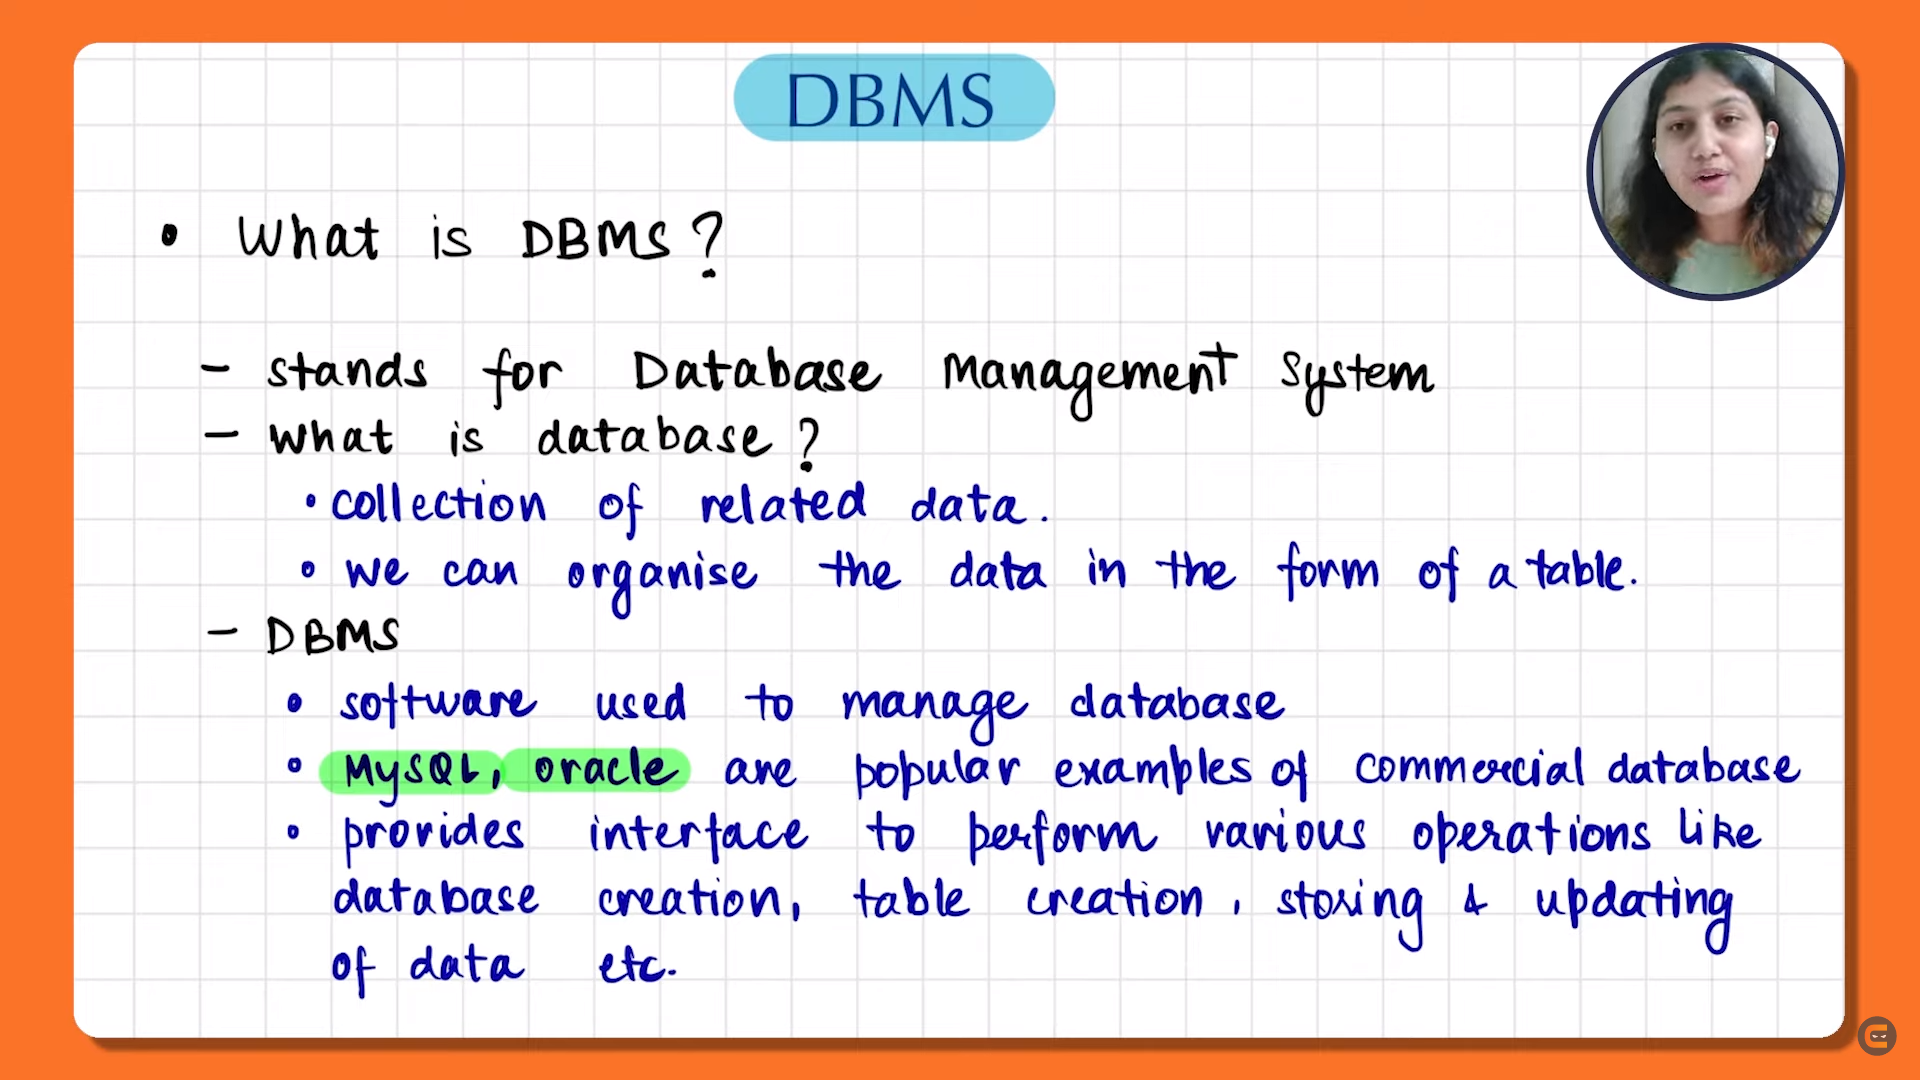 DBMS
• What is DBMS?
- stands for Database Management System
- what is database?
• collection of related data.
• we can organise the data in the form of a table.
- DBMS
• software used to manage database
• MySQL, oracle are popular examples of commercial database
• provides interface to perform various operations like
database creation, table creation, storing & updating
of data etc.